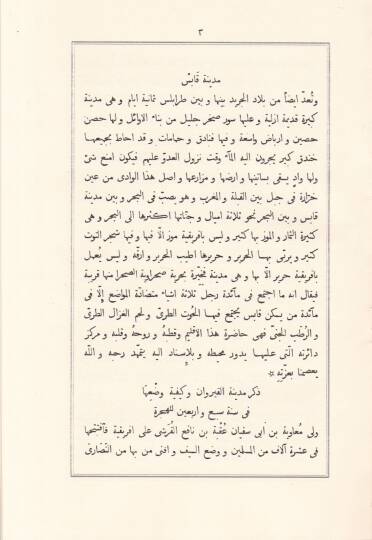 ٣
مدينة قَابِسْ
وتُعدّ ايضاً من بلاد الجريد بينها و بين طرابلس ثمانية ايام و هى مدينة
كبيرة قديمة ازلية و عليها سور صخر جليل من بناء الاوائل و لها حصن
حصين و ارباض واسعة و فيها فنادق و حمامات و قد احاط بجميعها
خندق كبير يجرون اليه المآء وقت نزول العدوّ عليهم فيكون امنع شئ
ولها وادٍ يسقى بساتينها و ارضها و مزارعها و اصل هذا الوادى من عين
خرّارة فى جبل بين القبلة و المغرب و هو يصبّ فى البحر و بين مدينة
قابس و بين البحر نحو ثلاثة اميال و جنّاتها اكثرها الى البحر و هى
كثيرة الثمار و الموز بها كثير و ليس بافريقية موز الّا فيها و فيها شجر التوت
كثير و يربّى بها الحرير و حريرها اطيب الحرير و ارقّه و ليس يُعمل
بافريقية حرير الّا بها و هى مدينة بحرية صحراوية الصحرا منها قريبة
فيقال انه ما اجتمع فى مآئدة رجل ثلاثة اشياء متضادّة المواضع إلّا فى
مآئدة من يسكن قابس يجتمع فيها الحُوت الطرىّ و لحم الغزال الطرىّ
و الرُطَب الجنىّ فهى حاضرة هذا الاقليم وقطبهُ و روحهُ وقلبه و مركز
دائرته الّتى عليها يدور محيطه و بالإسناد اليه يتمهّد رحبه و اللّه
يعصمنا بعزّتِهِ
ذكر مدينة القيروان و كيفية وضْعِهَا
فى سنة سبع و اربعين للهجرة
ولى مُعاوية بن أبى سفيان عُقْبة بن نافع القُرشى على افريقية فآفتتحها
فى عشرة آلاف من المسلمين و وضع السيف و افنى من بها من النّصَارى